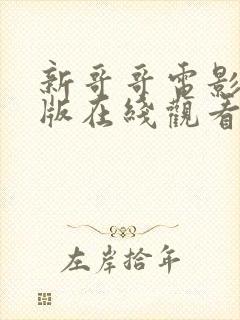 新哥哥電影
版在綫觀看
左岸拾年